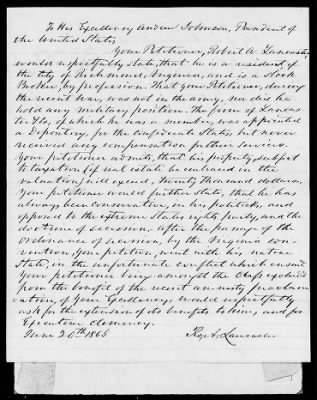 To His Excellency Andrew Johnson, President of
the United States,
Your Petitioner, Robert A. Lancaster
would respectfully state, that he is a resident of
the City of Richmond, Virginia, and is a Stock
Broker, by profession. That your Petitioner, during
the recent war, was not in the army, nor did he
hold any military position. The firm of Lancas-
ter & Co, of which he was a member, was appointed
a Depository, for the Confederate States, but never
received any compensation for their services.
Your petitioner admits, that his property, subject
to taxation (if real estate be embraced in the
valuation) will exceed, Twenty Thousand dollars.
Your petitioner would further state, that he has
always been conservative, in his politicks, and
opposed to the extreme States rights party, and the
doctrine of secession. After the passage of the
ordinance of secession, by the Virginia con-
vention, Your petitioner, went with his native
State, in the unfortunate conflict which ensued.
Your petitioner being amongst the Class excluded
from the benefit of the recent amnesty proclam-
ation, of Your Excellency, would respectfully
ask for the extension of its benefits to him, and for
Executive clemency.
June 20th 1865
Ro. A. Lancaster